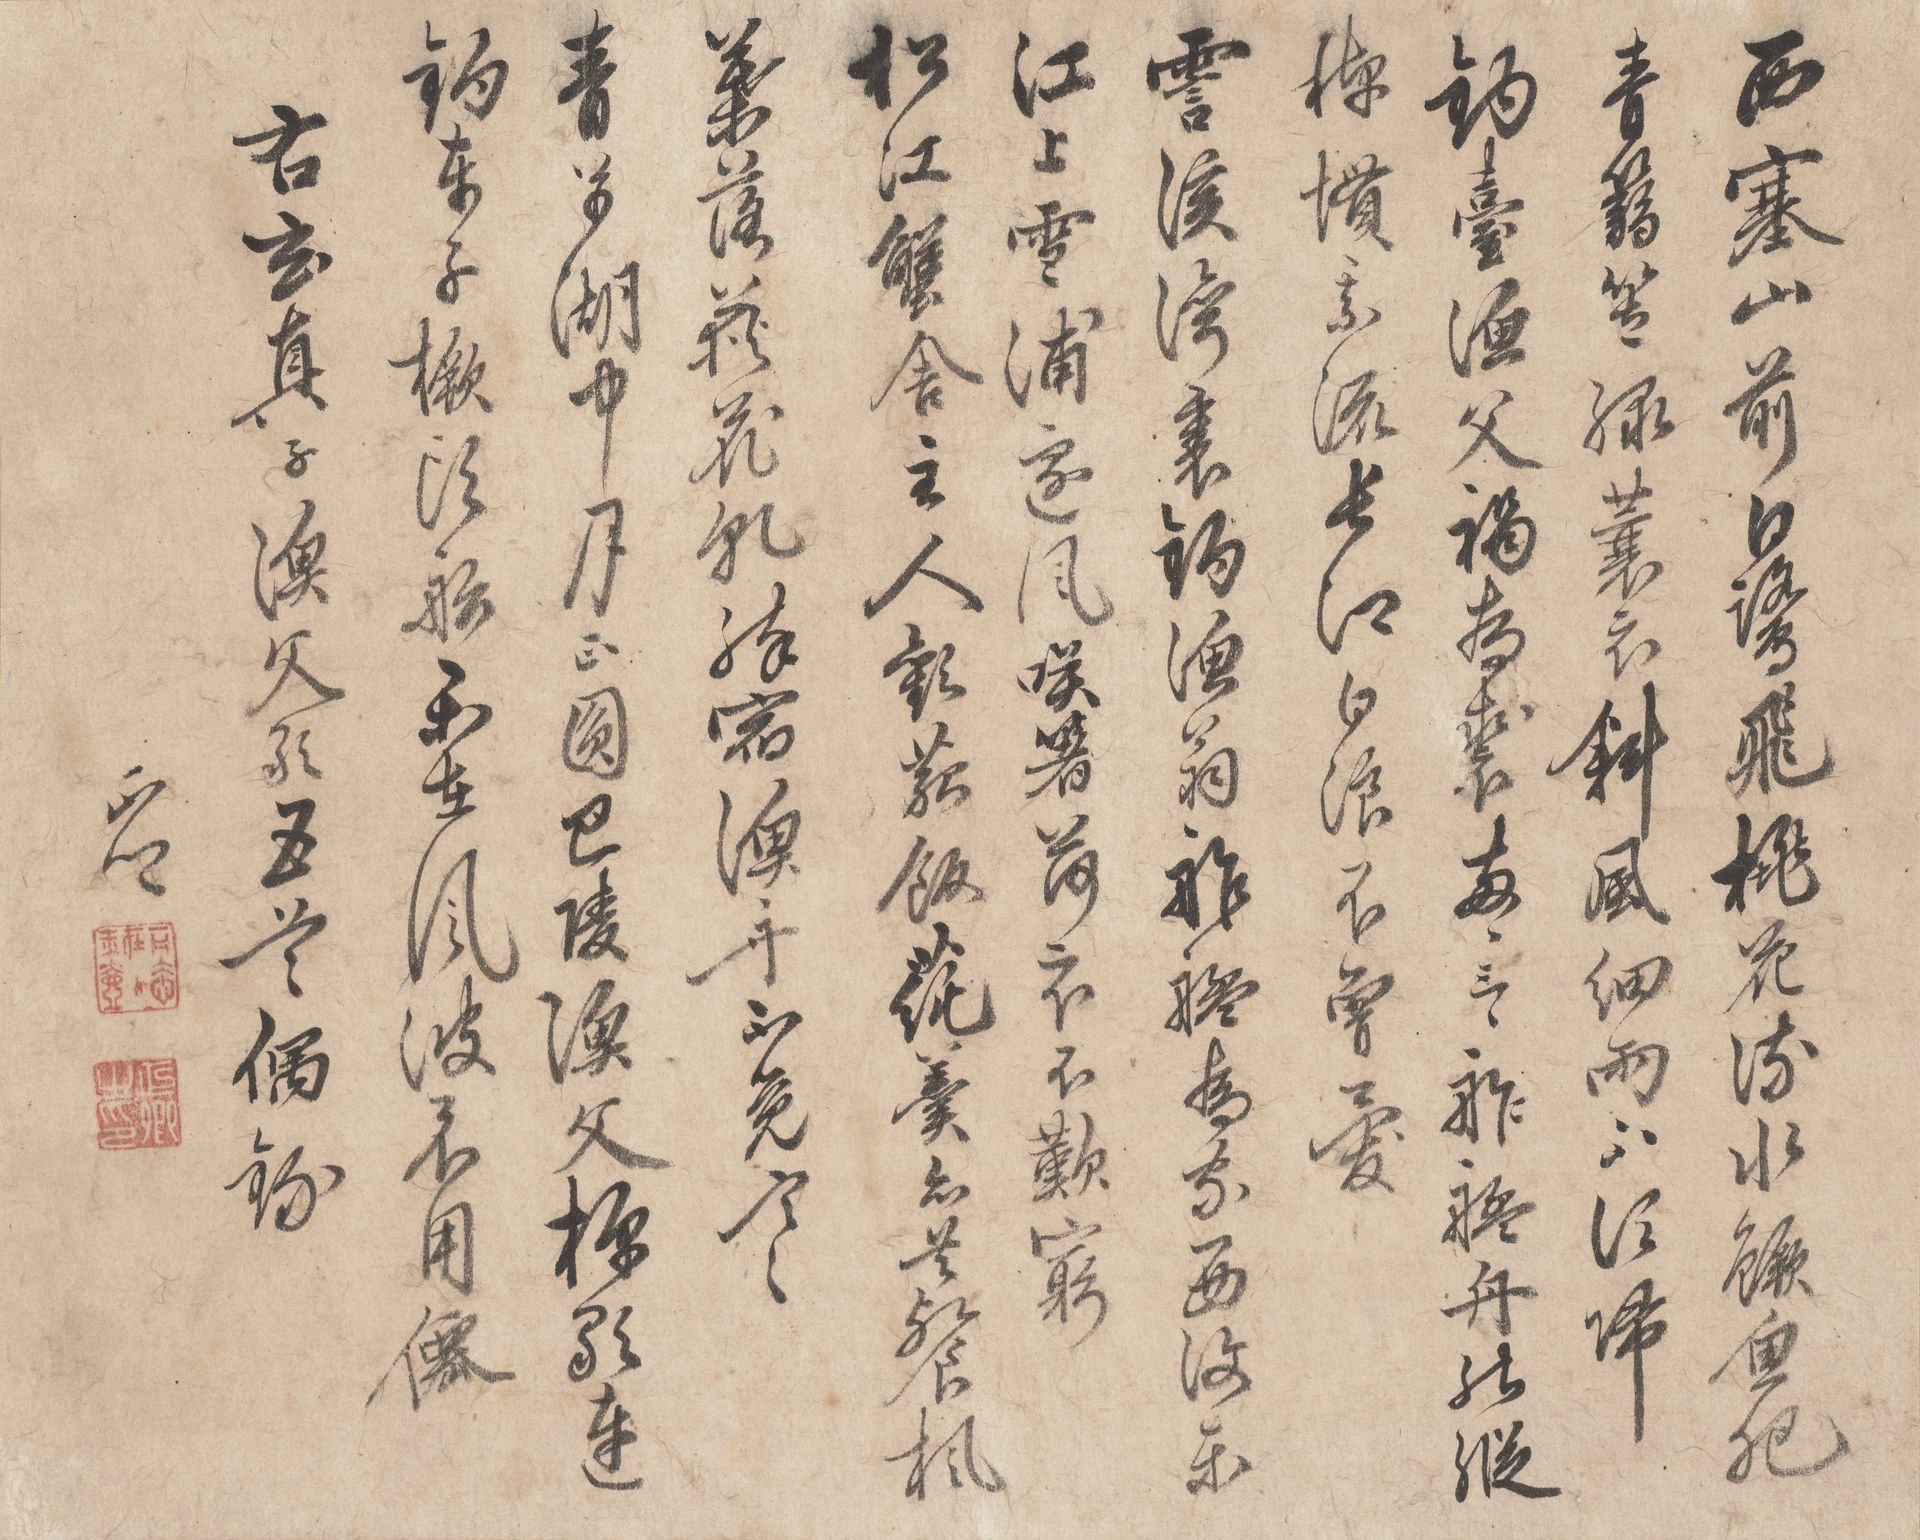 西塞山前白鷺飛桃花流水鱖魚肥
青篛笠綠蓑衣斜風細雨不須歸
釣臺漁父褐為裘兩兩三三舴艋舟能縱
棹慣乘流長江白浪不曾憂
霅溪灣裏釣漁翁舴艋為家西復東
江上雪浦邊風咲著荷衣不歎窮
松江蟹舍主人歡菰飯蓴羹亦共餐楓
葉落荻花乾醉宿漁舟不覺寒
青草湖中月正圓巴陵漁父棹歌連
釣車子橛頭船樂在風波不用僊
右玄真子漁父歌五首偶錄